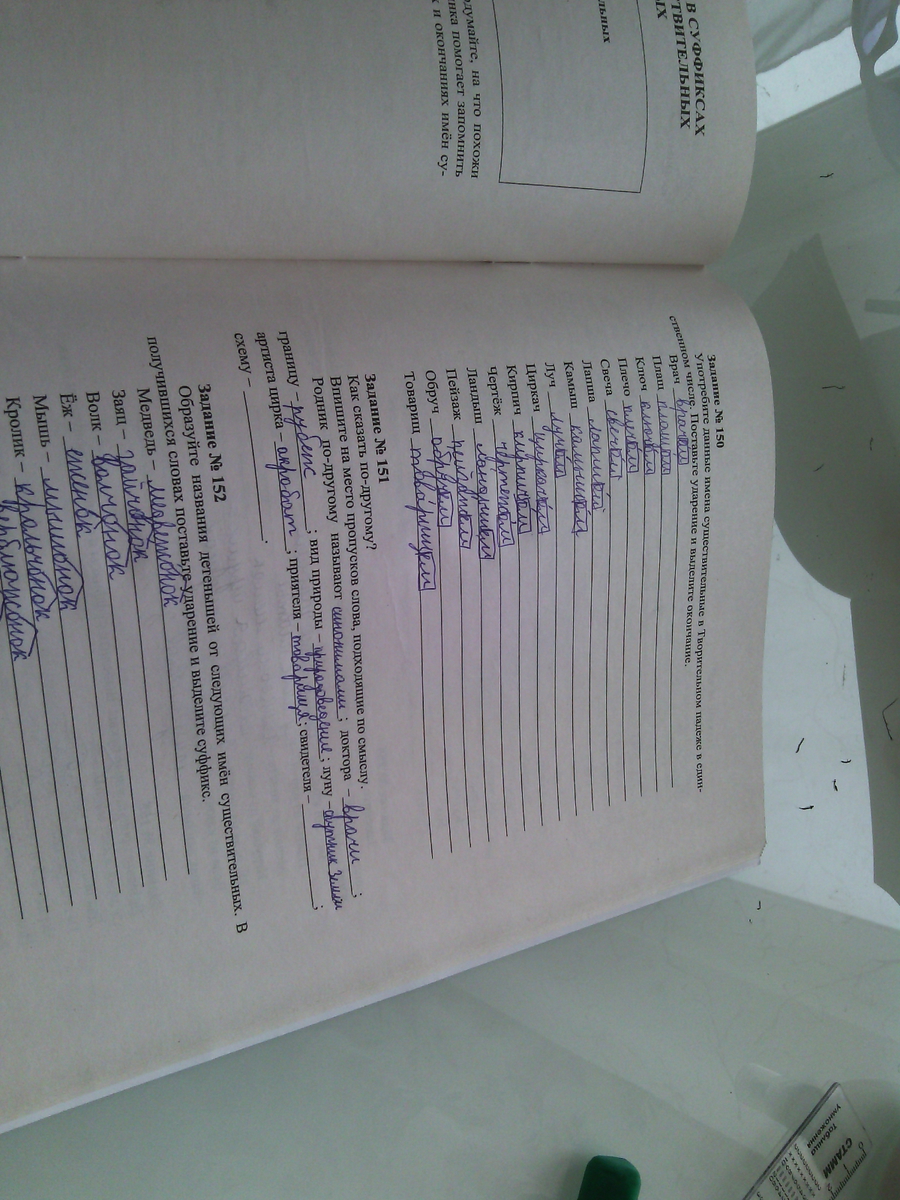 В СУФФИКСАХ
СТВИТЕЛЬНЫХ
ЫХ
льных
одумайте, на что похожи
енка помогает запомнить
х и окончаниях имён су-
Задание № 150
Употребите данные имена существительные в Творительном падеже в един-
ственном числе. Поставьте ударение и выделите окончание.
Врач врачом
Плащ плащом
Ключ ключом
Плечо плечом
Свеча свечой
Лапша лапшой
Камыш камышом
Луч лучом
Циркач циркачом
Кирпич кирпичом
Чертёж чертежом
Ландыш ландышем
Пейзаж пейзажем
Обруч обручем
Товарищ товарищем
Задание № 151
Как сказать по-другому?
Впишите на место пропусков слова, подходящие по смыслу.
Родник по-другому называют синонимами ; доктора – врачи ;
границу – рубеж ; вид природы – природоведение ; луну – спутник Земли
артиста цирка – акробат ; приятеля – товарища ; свидетеля – ;
схему – .
Задание № 152
Образуйте названия детенышей от следующих имён существительных. В
получившихся словах поставьте ударение и выделите суффикс.
Медведь – медвежонок
Заяц – зайчонок
Волк – волчонок
Ёж –
Мышь – мышонок
Кролик – крольчонок
верблюжонок
СТАММ
Таблица
умножения